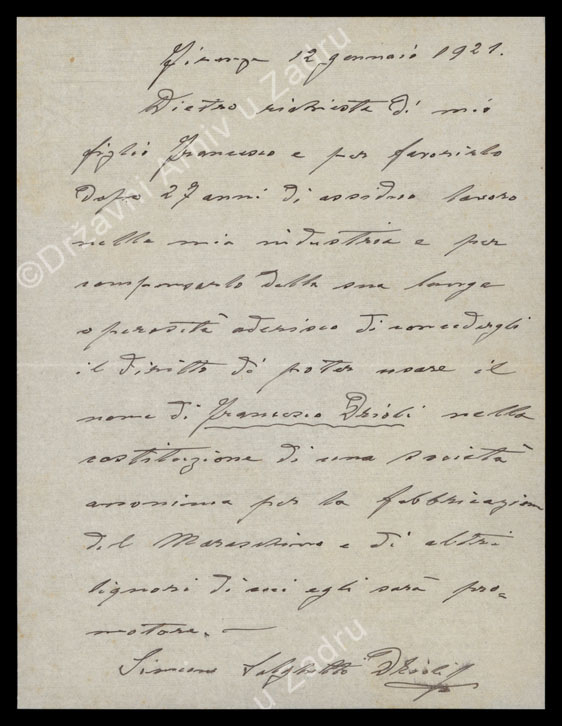 Firenze 12 gennaio 1921.
Dietro richiesta di mio
figlio Francesco e per favorirlo
dopo 27 anni di assiduo lavoro
nella mia industria e per
compensarlo della sua lunga
operosità aderisco di concedergli
il diritto di poter usare il
nome di Francesco Drioli nella
costituzione di una società
anonima per la fabbricazione
del Maraschino e di altri
liquori di cui egli sarà pro=
motore. —
Simeone Salghetto Drioli
©Državni Arhiv u Zadru
u Zadru